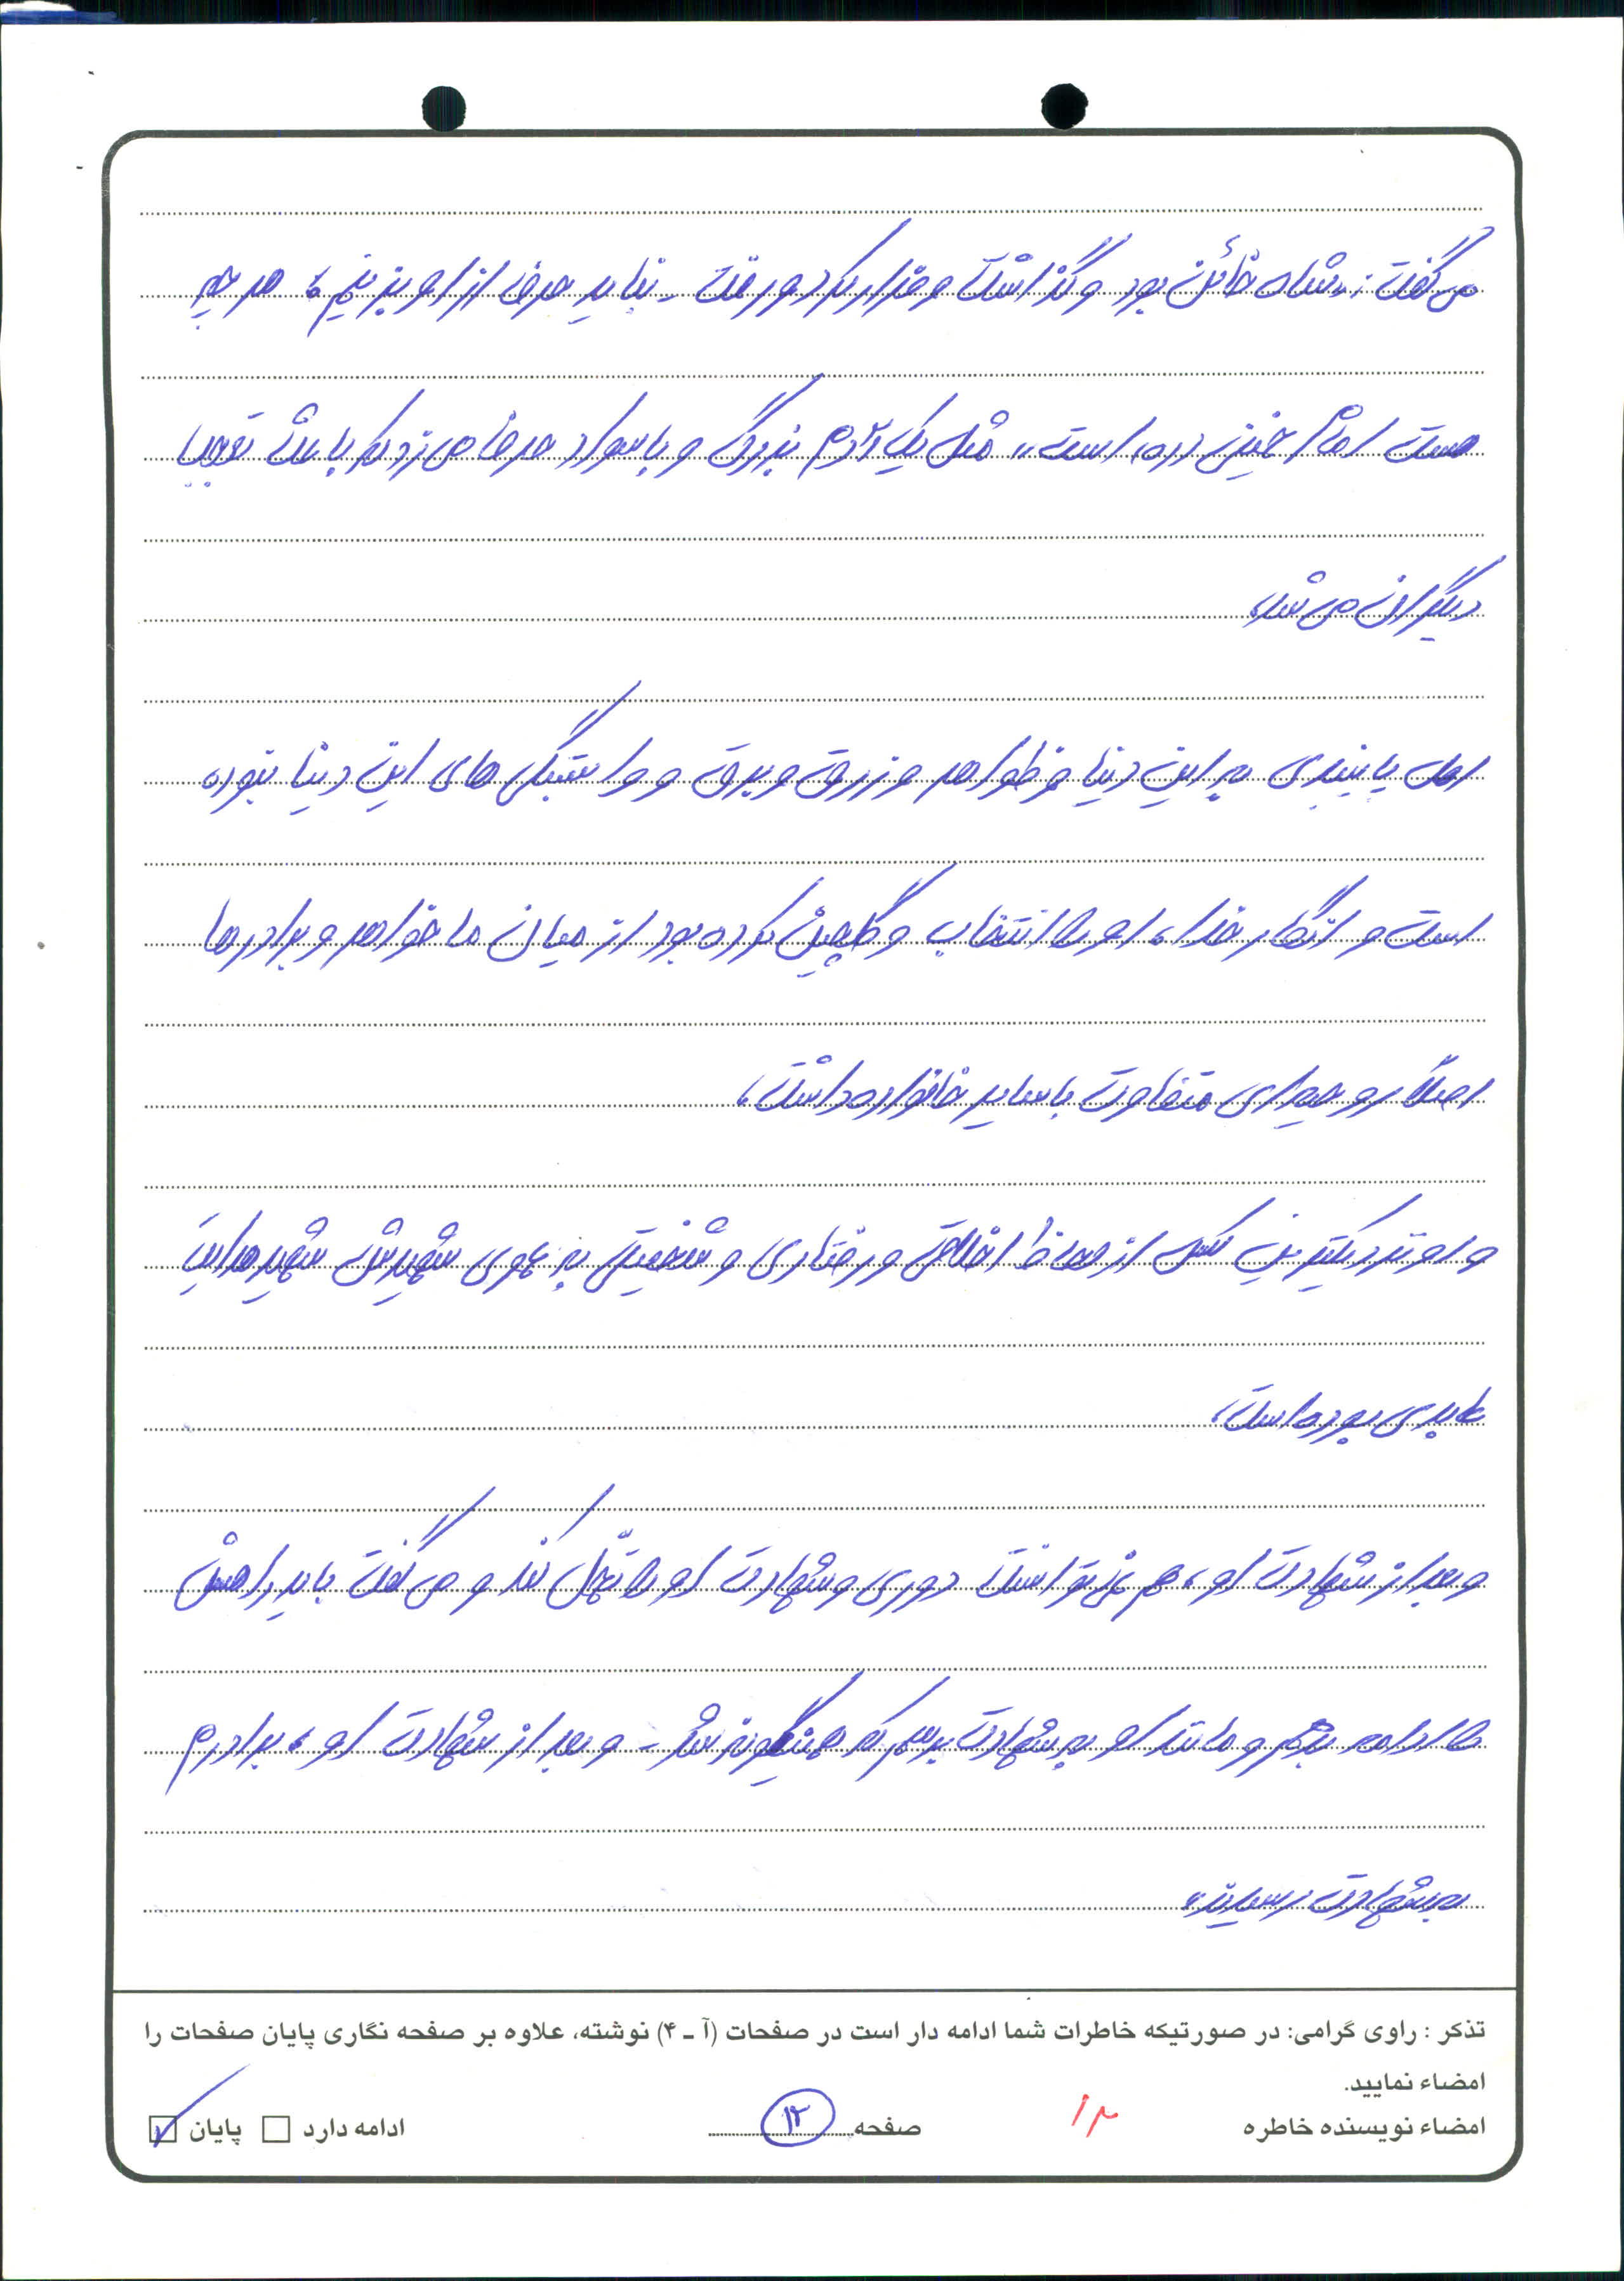 می گفت: «شاه خائن بود و گذاشت و فرار کرد و رفت - نباید حرف از او بزنیم، هر چه
هست امام خمینی (ره) است»، مثل یک آدم بزرگ و باسواد حرف می زد که باعث تعجب
دیگران می شد.
اصل پایبندی به این دنیا و ظواهر و زرق و برق و وابستگی های این دنیا نبوده
است و انگار خدا، او را انتخاب و گلچین کرده بود از میان ما خواهر و برادرها
اصلاً روحیه ای متفاوت با سایر خانواده داشت.
و او نزدیکترین کس از لحاظ اخلاقی و رفتاری و شخصیتی به عموی شهیدش شهید هدایت
عابدی بوده است.
و بعد از شهادت او، هم نمی توانست دوری و شهادت او را تحمّل کند و می گفت باید راهش
را ادامه بدهم و مانند او به شهادت برسم که همینگونه شد - و بعد از شهادت او، برادرم
به شهادت رسیدند.
تذکر : راوی گرامی: در صورتیکه خاطرات شما ادامه دار است در صفحات (آ ـ ۴) نوشته، علاوه بر صفحه نگاری پایان صفحات را
امضاء نمایید.
امضاء نویسنده خاطره ۱۳ صفحه ۱۲ ادامه دارد پایان